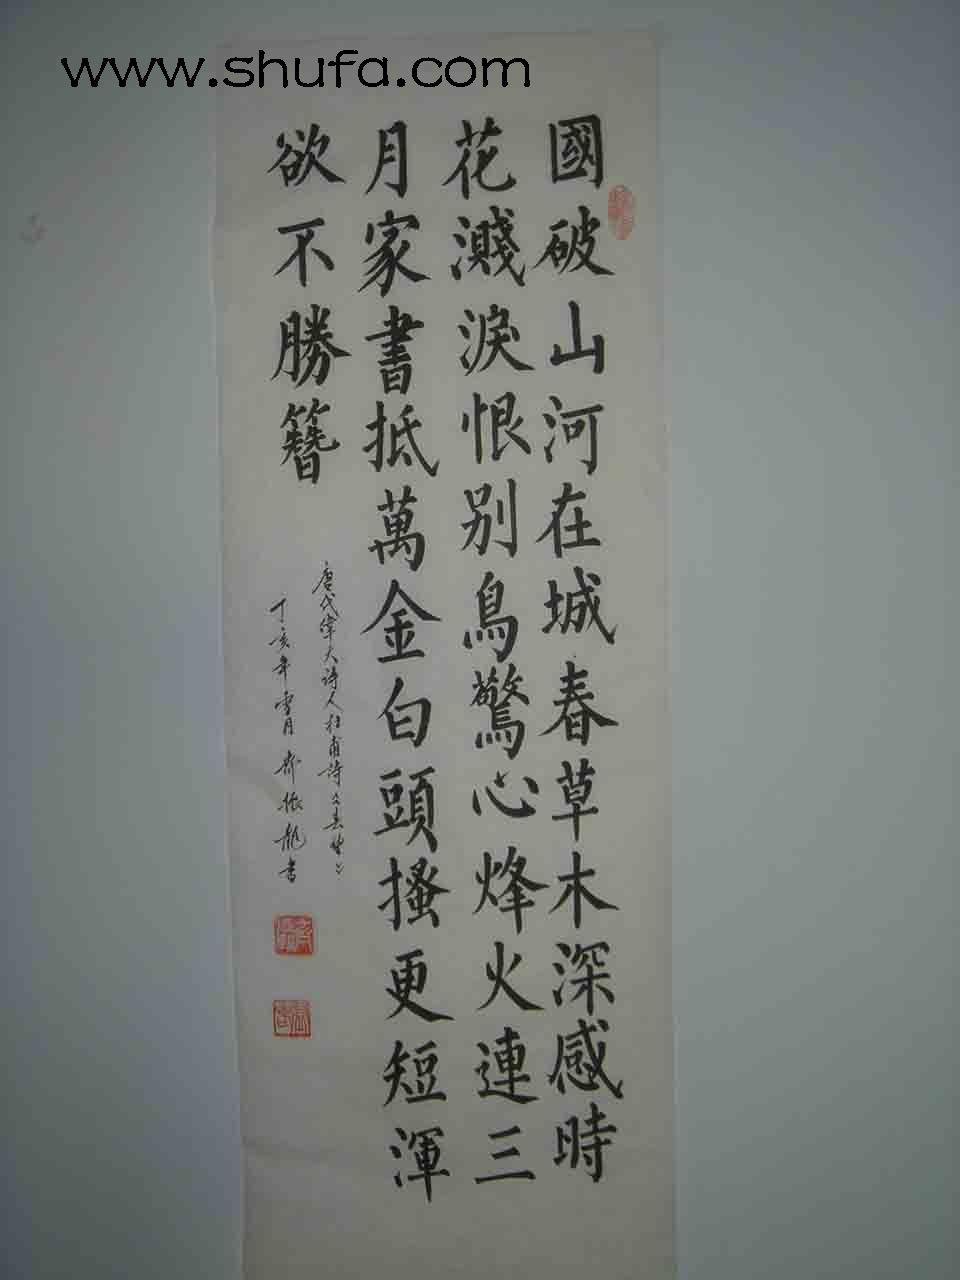 www.shufa.com
國破山河在城春草木深感時
花濺淚恨别鳥驚心烽火連三
月家書抵萬金白頭搔更短渾
欲不勝簪
唐代偉大詩人杜甫詩之春望
丁亥年雪月 振龍書